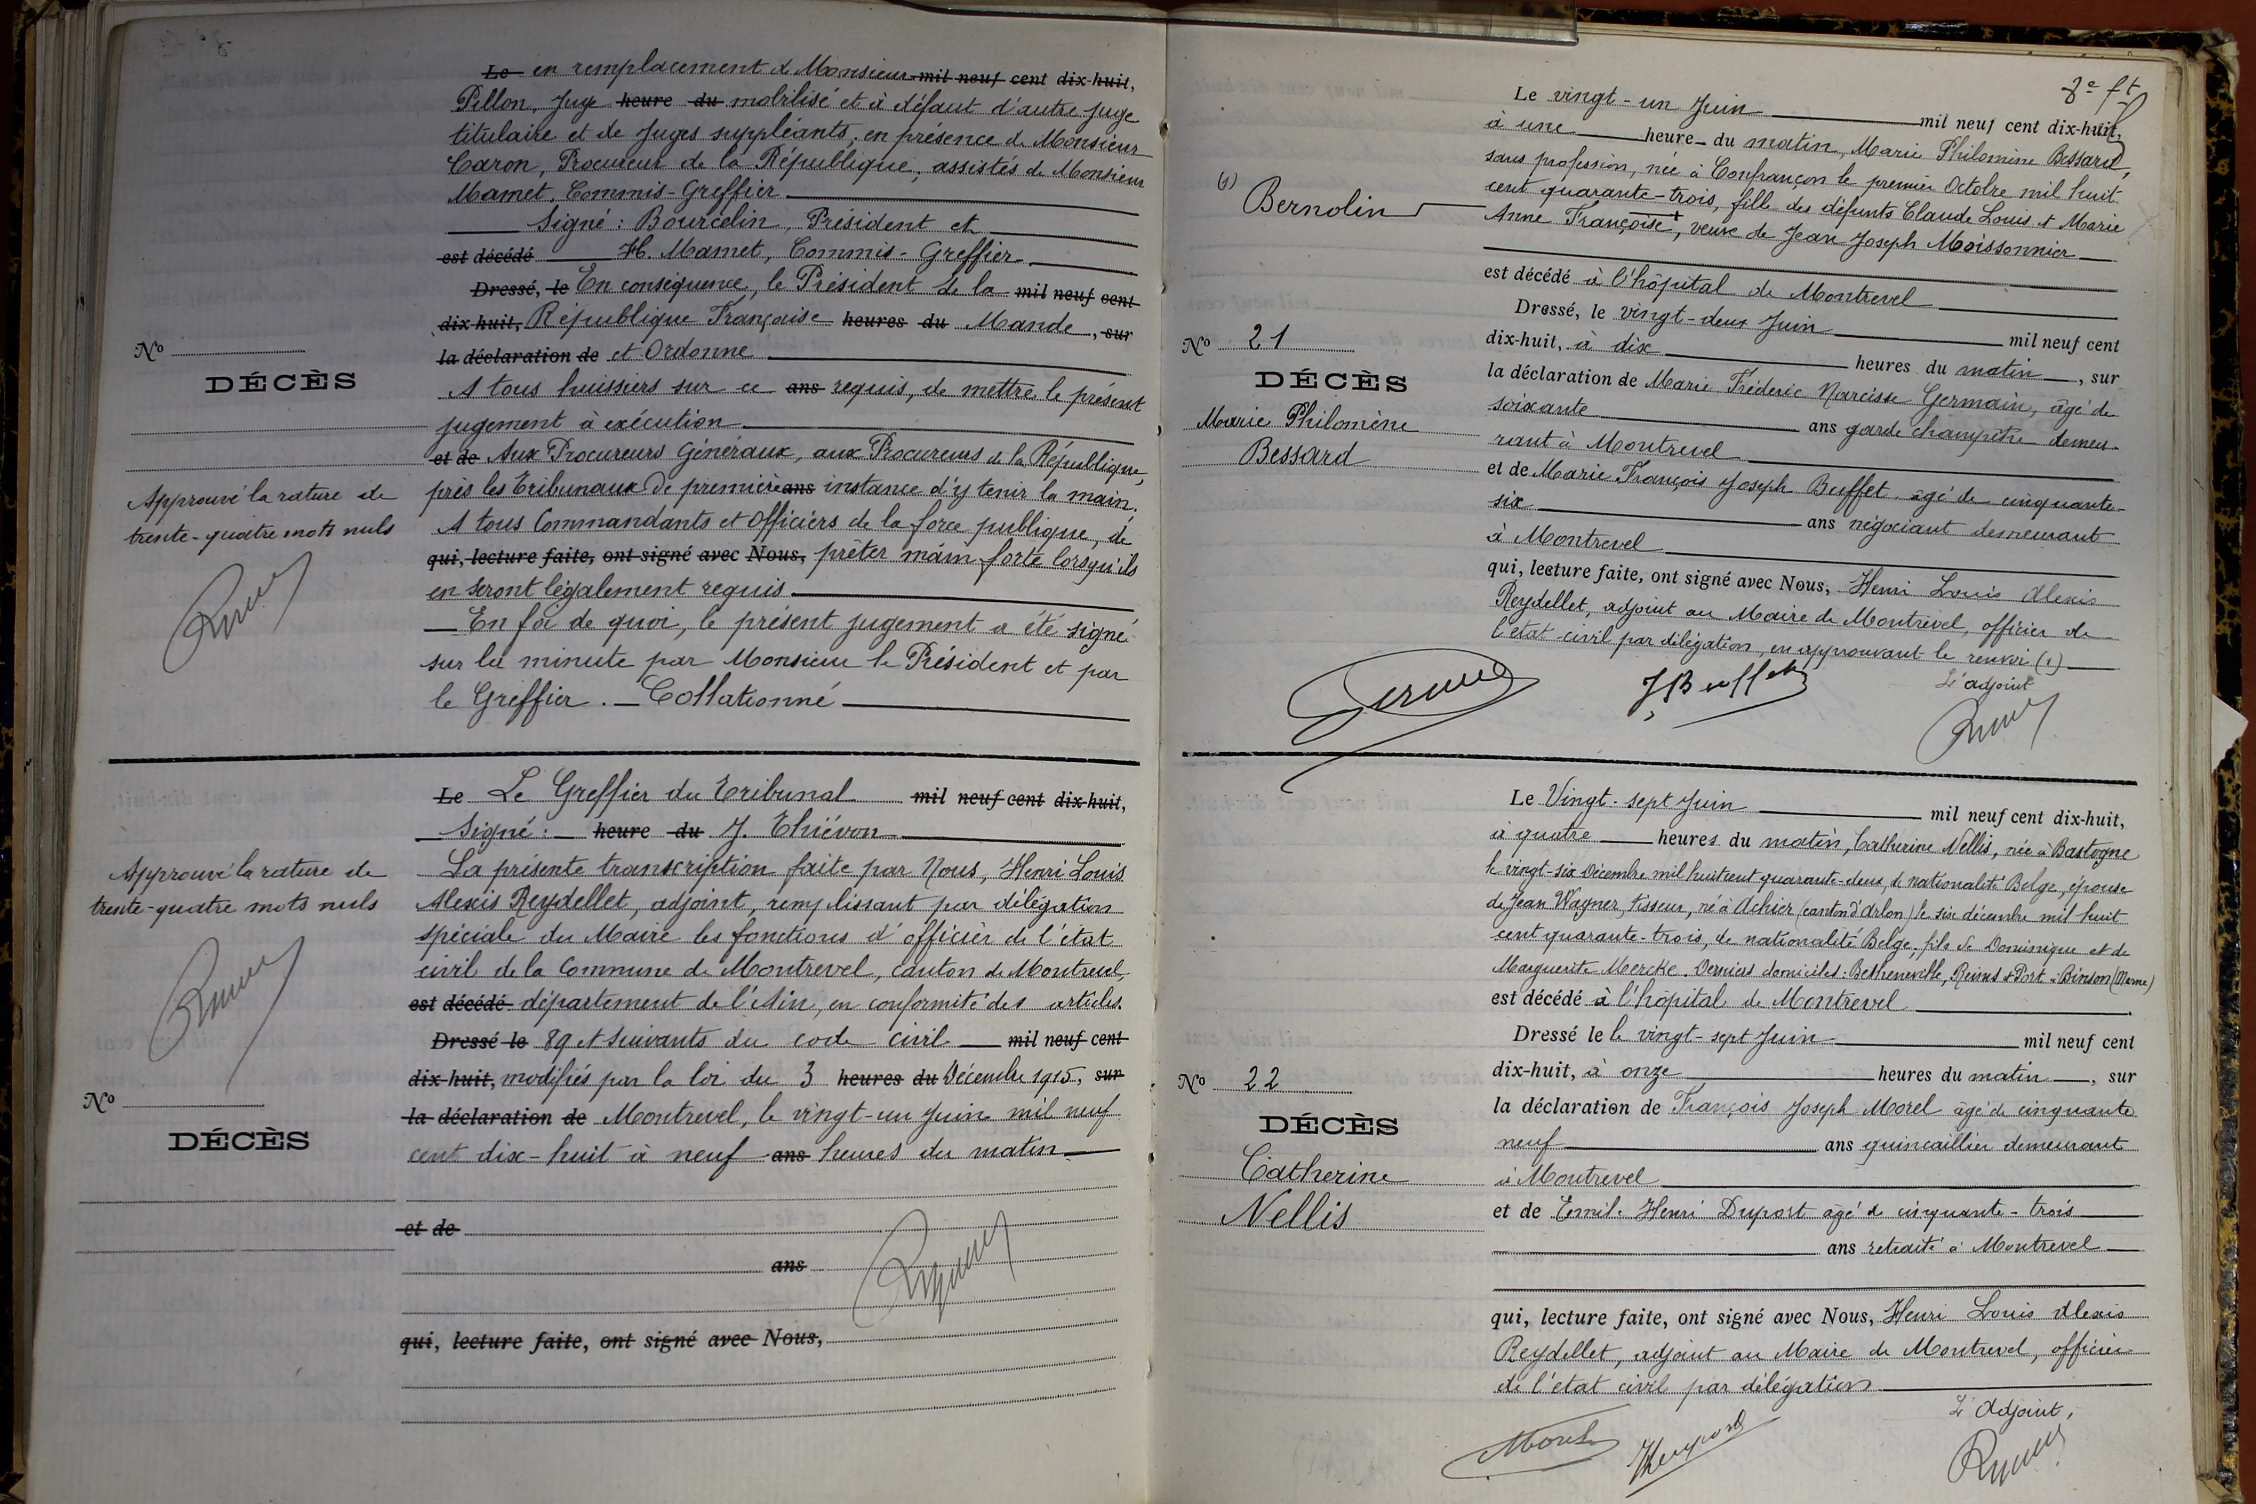 Le en remplacement d Monsieur mil neuf cent dix-huit,
Pillon, Juge heure du mobilisé et à défaut d'autre juge
titulaire et de Juges suppléants, en présence de Monsieur
Caron, Procureur de la République, assistés de Monsieur
Mamet, Commis-Greffier
Signé : Bourcelin, Président et
est décédé H. Mamet, Commis-Greffier
Dressé, le En conséquence, le Président de la mil neuf cent
dix-huit, République Française heures du Mande, sur
la déclaration de et Ordonne
A tous huissiers sur ce ans requis, de mettre le présent
jugement à exécution
et de Aux Procureurs Généraux, aux Procureurs de la République,
près les Tribunaux de première ans instance d'y tenir la main.
A tous Commandants et Officiers de la force publique, de
qui, lecture faite, ont signé avec Nous, prêter main forte lorsqu'ils
en seront légalement requis
En foi de quoi, le présent jugement a été signé
sur la minute par Monsieur le Président et par
le Greffier. — Collationné
No
DÉCÈS
Approuvé la rature de
trente-quatre mots nuls
Le Le Greffier du Tribunal mil neuf cent dix-huit,
Signé : heure du J. Thiévon
La présente transcription faite par Nous, Henri Louis
Alexis Reydellet, adjoint, remplissant par délégation
spéciale du Maire les fonctions d'officier de l'état
civil de la Commune de Montrevel, canton de Montrevel,
est décédé département de l'Ain, en conformité des articles
Dressé le 89 et suivants du code civil mil neuf cent
dix-huit, modifiés par la loi du 3 heures du Décembre 1915, sur
la déclaration de Montrevel, le vingt-un Juin mil neuf
cent dix-huit à neuf ans heures du matin
et de
ans
qui, lecture faite, ont signé avec Nous,
Approuvé la rature de
trente-quatre mots nuls
No
DÉCÈS
8e ft
Le vingt-un Juin mil neuf cent dix-huit,
à une heure du matin, Marie Philomène Bessard,
sans profession, née à Confrançon le premier Octobre mil huit
cent quarante-trois, fille des défunts Claude Louis et Marie
Anne Françoise +, veuve de Jean Joseph Moissonnier
est décédé à l'hôpital de Montrevel
Dressé, le vingt-deux Juin mil neuf cent
dix-huit, à dix heures du matin, sur
la déclaration de Marie Fréderic Narcisse Germain, âgé de
soixante ans garde champêtre demeu-
rant à Montrevel
et de Marie François Joseph Buffet âgé de cinquante-
six ans négociant demeurant
à Montrevel
qui, lecture faite, ont signé avec Nous, Henri Louis Alexis
Reydellet, adjoint au Maire de Montrevel, officier de
l'état civil par délégation, en approuvant le renvoi (1)
L'adjoint
JBuffet
(1)
Bernolin
No 21
DÉCÈS
Marie Philomène
Bessard
Le Vingt-sept Juin mil neuf cent dix-huit,
à quatre heures du matin, Catherine Nellis, née à Bastogne
le vingt-six Décembre mil huit cent quarante-deux, de nationalité Belge, épouse
de Jean Wagner, tisseur, né à Achier (canton d'Arlon) le six décembre mil huit
cent quarante-trois, de nationalité Belge, fils de Dominique et de
Marguerite Mercke. Derniers domiciles : Betheneville, Reims & Port-à-Binson (Marne)
est décédé à l'hôpital de Montrevel
Dressé le le vingt-sept Juin mil neuf cent
dix-huit, à onze heures du matin, sur
la déclaration de François Joseph Morel âgé de cinquante
neuf ans quincaillier demeurant
à Montrevel
et de Emile Henri Duport âgé de cinquante-trois
ans retraité à Montrevel
qui, lecture faite, ont signé avec Nous, Henri Louis Alexis
Reydellet, adjoint au Maire de Montrevel, officier
de l'état civil par délégation
L'Adjoint,
Morel
HDuport
No 22
DÉCÈS
Catherine
Nellis